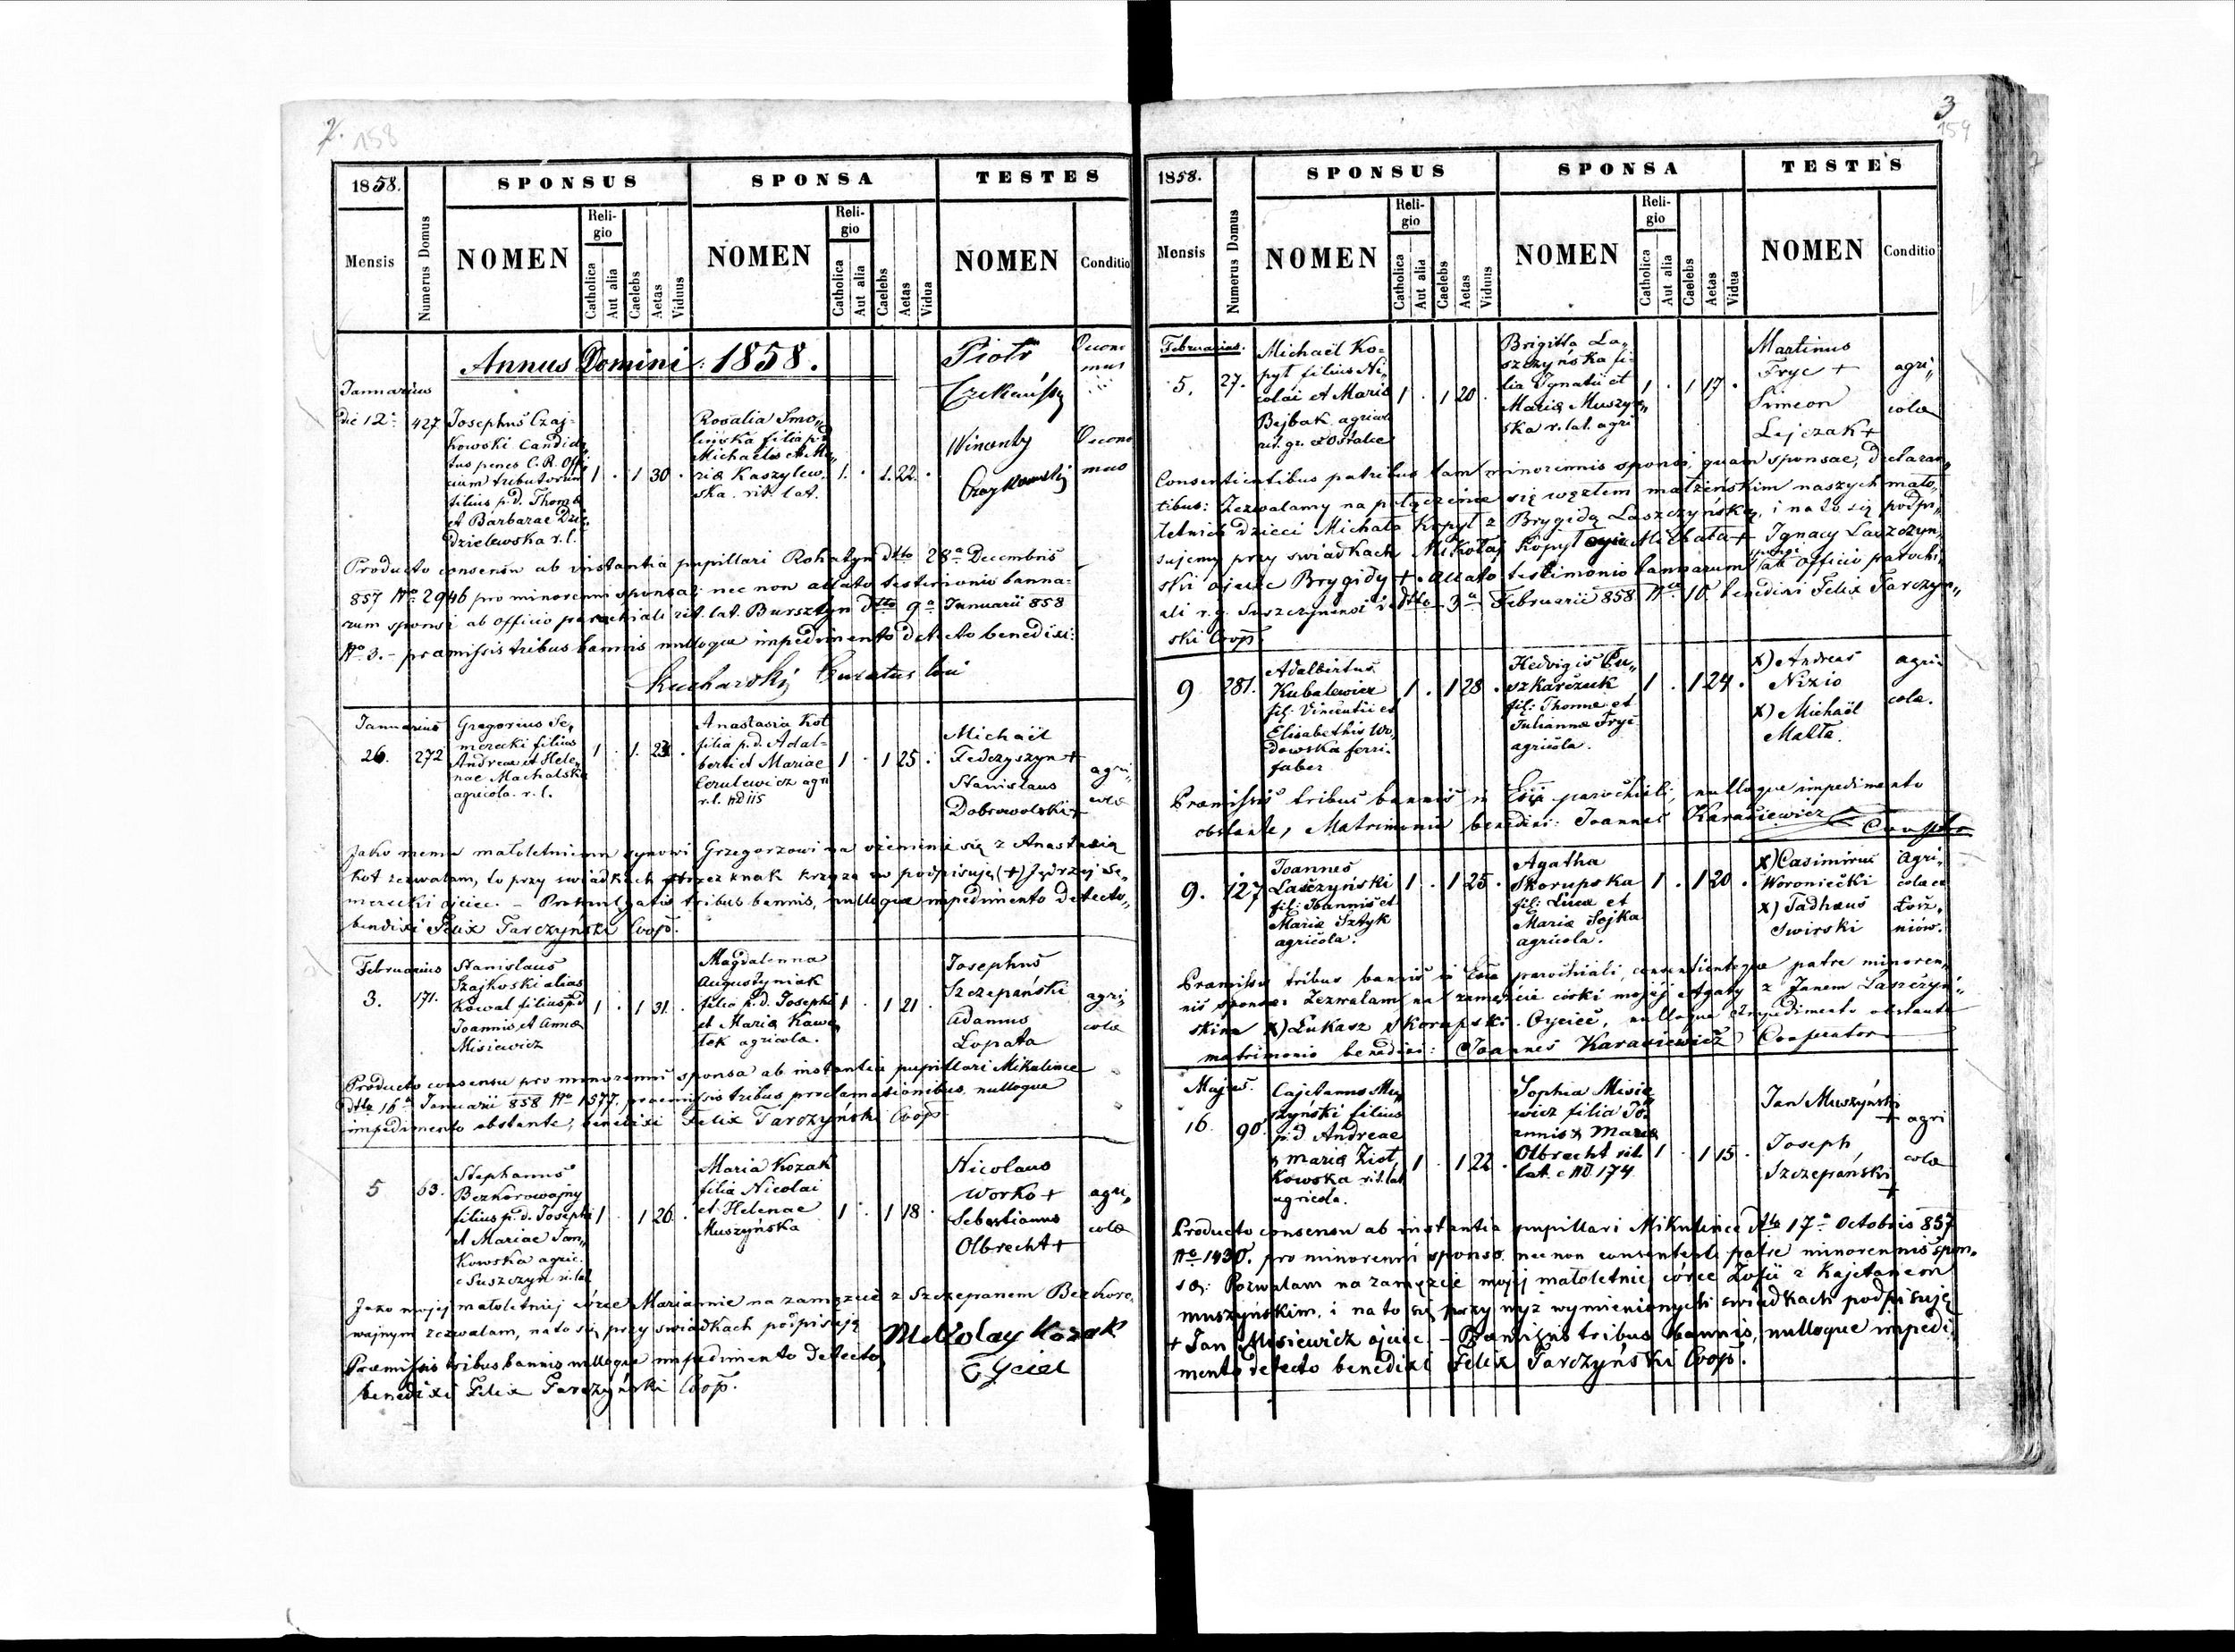 2. 158
1858.
SPONSUS
SPONSA
TESTES
Mensis
Numerus Domus
NOMEN
Religio
Catholica
Aut alia
Caelebs
Aetas
Viduus
NOMEN
Religio
Catholica
Aut alia
Caelebs
Aetas
Vidua
NOMEN
Conditio
Annus Domini 1858.
Januarius
die 12
427
Josephus Czaj-
kowski Candida„
tus penes C. R. Offi
cium tributorum
filius p. d. Thomæ
et Barbarae Dzie„
dzielewska r. l.
1 . 1 30 .
Rosalia Smo„
lińska filia p. d.
Michaelis et Ma„
riæ Kaszylew„
ska. rit. lat.
1. . 1. 22. .
Piotr
Czekański
Oecono
mus
Wincenty
Czaykowski
Oecono
mus
Producto consensu ab instantia pupillari Rohatyn dtto 28a Decembris
857 No 2946 pro minorenni sponsa: nec non allato testimonio banno-
rum sponsi ab officio parochiali rit. lat. Bursztyn dtto 9a Januarii 858
No 3. – præmissis tribus bannis nulloque impedimento detecto benedixi:
Kucharski Curatus loci
Januarius
26. 272
Gregorius Se„
merecki filius
Andreae et Hele„
nae Machalska
agricola. r. l.
1 . 1. 23 .
Anastasia Kot
filia p. d. Adal-
berti et Mariae
Cerulewicz agr.
r. l. ND 115
1 . 1 25 .
Michaël
Fedczyszyn +
Stanislaus
Dobrowolski +
agri„
colæ
Jako memu małoletniemu synowi Grzegorzowi na ożenienie się z Anastazią
Kot zezwalam, to przy swiadkach przez znak krzyża podpisuję (+) Jędrzej Se„
merecki ojciec. – Promulgatis tribus bannis, nulloque impedimento detecto„
benedixi Felix Tarczyński Coop.
Februarius
3. 171.
Stanislaus
Szajkoski alias
Kowal filius p. d
Joannis et Annæ
Misiewicz
1 . 1 31. .
Magdalenna
Augustyniak
filia p. d. Josephi
et Mariæ Kawa„
łek agricola.
1 . 1 21 .
Josephus
Szczepański
Adamus
Łopata
agri„
colæ
Producto consensu pro minorenni sponsa ab instantia pupillari Mikulince
dtto 16a Januarii 858 No 1577. praemissis tribus proclamationibus, nulloque
impedimento obstante, benedixi Felix Tarczyński Coop
5 63.
Stephanus
Bezkorowajny
filius p. d. Josephi
et Mariae Jan„
kowska agric.
e Suszczyn rit. lat
1 . 1 26. .
Maria Kozak
filia Nicolai
et Helenae
Muszyńska
1 . 1 18 .
Nicolaus
Worko +
Sebastianus
Olbrecht +
agri„
colæ
Jako mojej małoletniej córce Mariannie na zamęzcie z Szczepanem Bezkoro„
wajnym zezwalam, na to się przy swiadkach podpisują Mikolay Kozak
Oyciec
Præmissis tribus bannis nulloque impedimento detecto,
benedixi Felix Tarczyński Coop.
3
159
1858.
SPONSUS
SPONSA
TESTES
Mensis
Numerus Domus
NOMEN
Religio
Catholica
Aut alia
Caelebs
Aetas
Viduus
NOMEN
Religio
Catholica
Aut alia
Caelebs
Aetas
Vidua
NOMEN
Conditio
Februarius.
5. 27.
Michaël Ko=
pyt filius Ni„
colai et Mariæ
Bejbak agricola
rit. gr.
1 . 1 20 .
Brigitta La„
szczyńska fi-
lia Ignatii et
Mariæ Muszyń„
ska r. lat. agri
1 . 1 17 .
Martinus
Fryc +
Simeon
Lejczak +
agri„
colæ
Consentientibus patribus tam minorennis sponsi, quam sponsae, declaran„
tibus: Zezwalamy na połączenie się węzłem małżeńskim naszych mało„
letnich dzieci Michała Kopyt z Brygidą Laszczyńską, i na to się podpi„
sujemy przy swiadkach Mikołaj Kopyt oyciec Michała + Ignacy Laszczyń„
ski ojciec Brygidy +. Allato testimonio bannorum sponsi ab officio parochi„
ali r. g. Suszczynensi ddtto 3a Februarii 858 Nro 10 benedixi Felix Tarczyń„
ski Coop.
9 281.
Adalbertus
Kubalewicz
fil: Vincentii et
Elisabethis Wo„
dowska ferri-
faber
1 . 1 28 .
Hedvigis Pu„
szkarczuk
fil: Thomæ et
Julianna Fryc
agricola.
1 . 1 24 .
x) Andreas
Nizio
x) Michaël
Malta.
agri-
colæ.
Præmissis tribus bannis in Ecclia parochiali, nulloque impedimento
obstante, Matrimonio benedixi: Joannes Karasiewicz Cooptor
9. 127
Joannes
Laszczyński
fil: Joannis et
Mariæ Sztyk
agricola.
1 . 1 25 .
Agatha
Skorupska
fil: Lucæ et
Mariæ Sojka
agricola.
1 . 1 20 .
x) Casimirus
Woroniecki
x) Tadhæus
Swirski
agri„
colæ e
Łosz„
niów.
Præmissis tribus bannis in Ecclia parochiali, consentienteque patre minoren„
nis sponsæ: Zezwalam na zamęzcie córki mojéj Agaty z Janem Laszczyń„
skim x) Łukasz Skorupski. Oyciec, nulloque impedimento obstante
matrimonio benedixi: Joannes Karasiewicz Cooperator
Majus.
16 90.
Cajetanus Mu„
szyński filius
p. d Andreae
& Mariæ Ziot„
kowska rit. lat
agricola.
1 . 1 22 .
Sophia Misie„
wicz filia Jo„
annis & Mariæ
Olbrecht rit
lat. e ND 174
1 . 1 15 .
Jan Muszyński
+
Joseph
Szczepański
+
agri
colæ
Producto consensu ab instantia pupillari Mikulince dtto 17a Octobris 857
No 1430. pro minorenni sponso nec non consentente patre minorennis spon„
sæ: Pozwalam na zamęzcie mojéj małoletniej córce Zofii z Kajetanem
Muszyńskim, i na to się przy wyż wymienionych swiadkach podpisuję
+ Jan Misiewicz ojciec – Præmissis tribus bannis, nulloque impedi„
mento detecto benedixi Felix Tarczyński Coop.